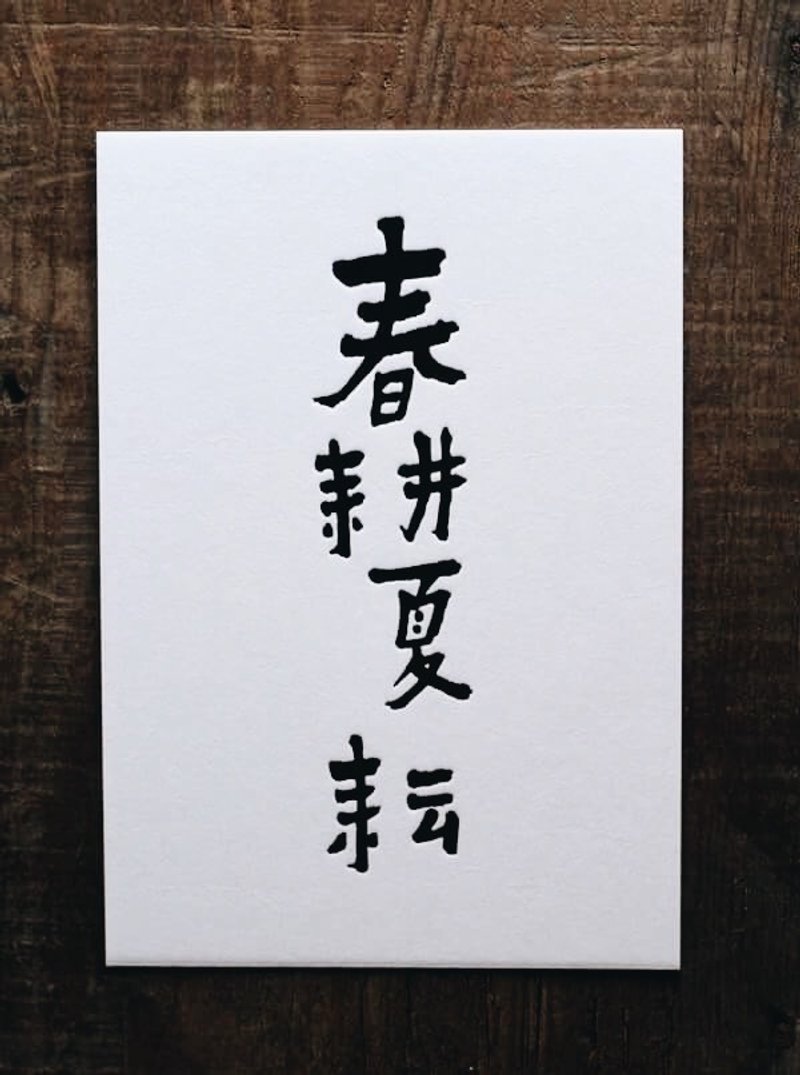 春耕夏耘